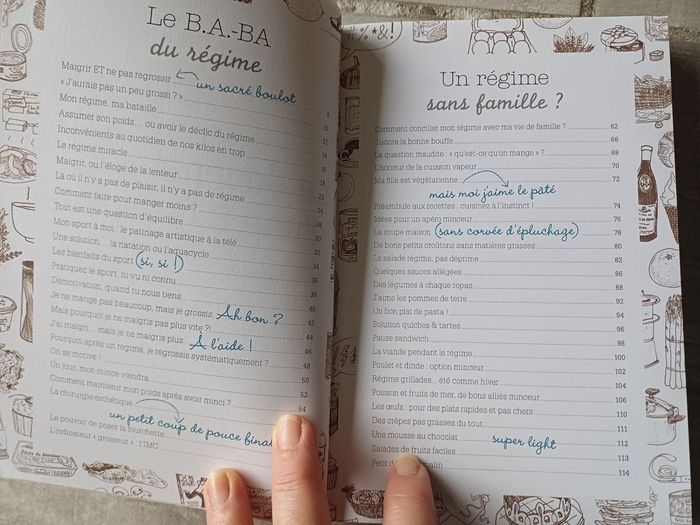 Le B.A.-BA
du régime
Maigrir ET ne pas regrossir
un sacré boulot
« J'aurais pas un peu grossi ? » 8
Mon régime, ma bataille
Assumer son poids… ou avoir le déclic du régime
Inconvénients au quotidien de nos kilos en trop
Le régime miracle
Maigrir, ou l'éloge de la lenteur
Là où il n'y a pas de plaisir, il n'y a pas de régime
Comment faire pour manger moins ?
Tout est une question d'équilibre
Mon sport à moi : le patinage artistique à la télé
Une solution… la natation ou l'aquacycle
Les bienfaits du sport (si, si !)
Pratiquez le sport, ni vu ni connu
Démotivation, quand tu nous tiens…
Je ne mange pas beaucoup, mais je grossis. Ah bon ?
Mais pourquoi je ne maigris pas plus vite ?!
J'ai maigri… mais je ne maigris plus. À l'aide !
Pourquoi après un régime, je regrossis systématiquement ?
On se motive !
Un jour, mon mince viendra
Comment maintenir mon poids après avoir minci ?
La chirurgie esthétique
un petit coup de pouce
Le pouvoir de poser la fourchette
L'indicateur « grosseur » : l'IMC
#%*&!
Un régime
sans famille ?
Comment concilier mon régime avec ma vie de famille ? 62
J'adore la bonne bouffe 66
La question maudite : « qu'est-ce qu'on mange » ? 68
L'horreur de la cuisson vapeur 70
Ma fille est végétarienne 72
mais moi j'aime le pâté
Préambule aux recettes : cuisinez à l'instinct ! 74
Idées pour un apéro minceur 76
La soupe maison (sans corvée d'épluchage) 78
De bons petits croûtons sans matières grasses 80
La salade régime, pas déprime 82
Quelques sauces allégées 84
Des légumes à chaque repas 88
J'aime les pommes de terre 92
Un bon plat de pasta ! 94
Solution quiches & tartes 96
Pause sandwich 98
La viande pendant le régime 100
Poulet et dinde : option minceur 102
Régime grillades… été comme hiver 104
Poisson et fruits de mer, de bons alliés minceur 106
Les œufs : pour des plats rapides et pas chers 110
Des crêpes pas grasses du tout 111
Une mousse au chocolat super light 112
Salades de fruits faciles 113
Petit 114